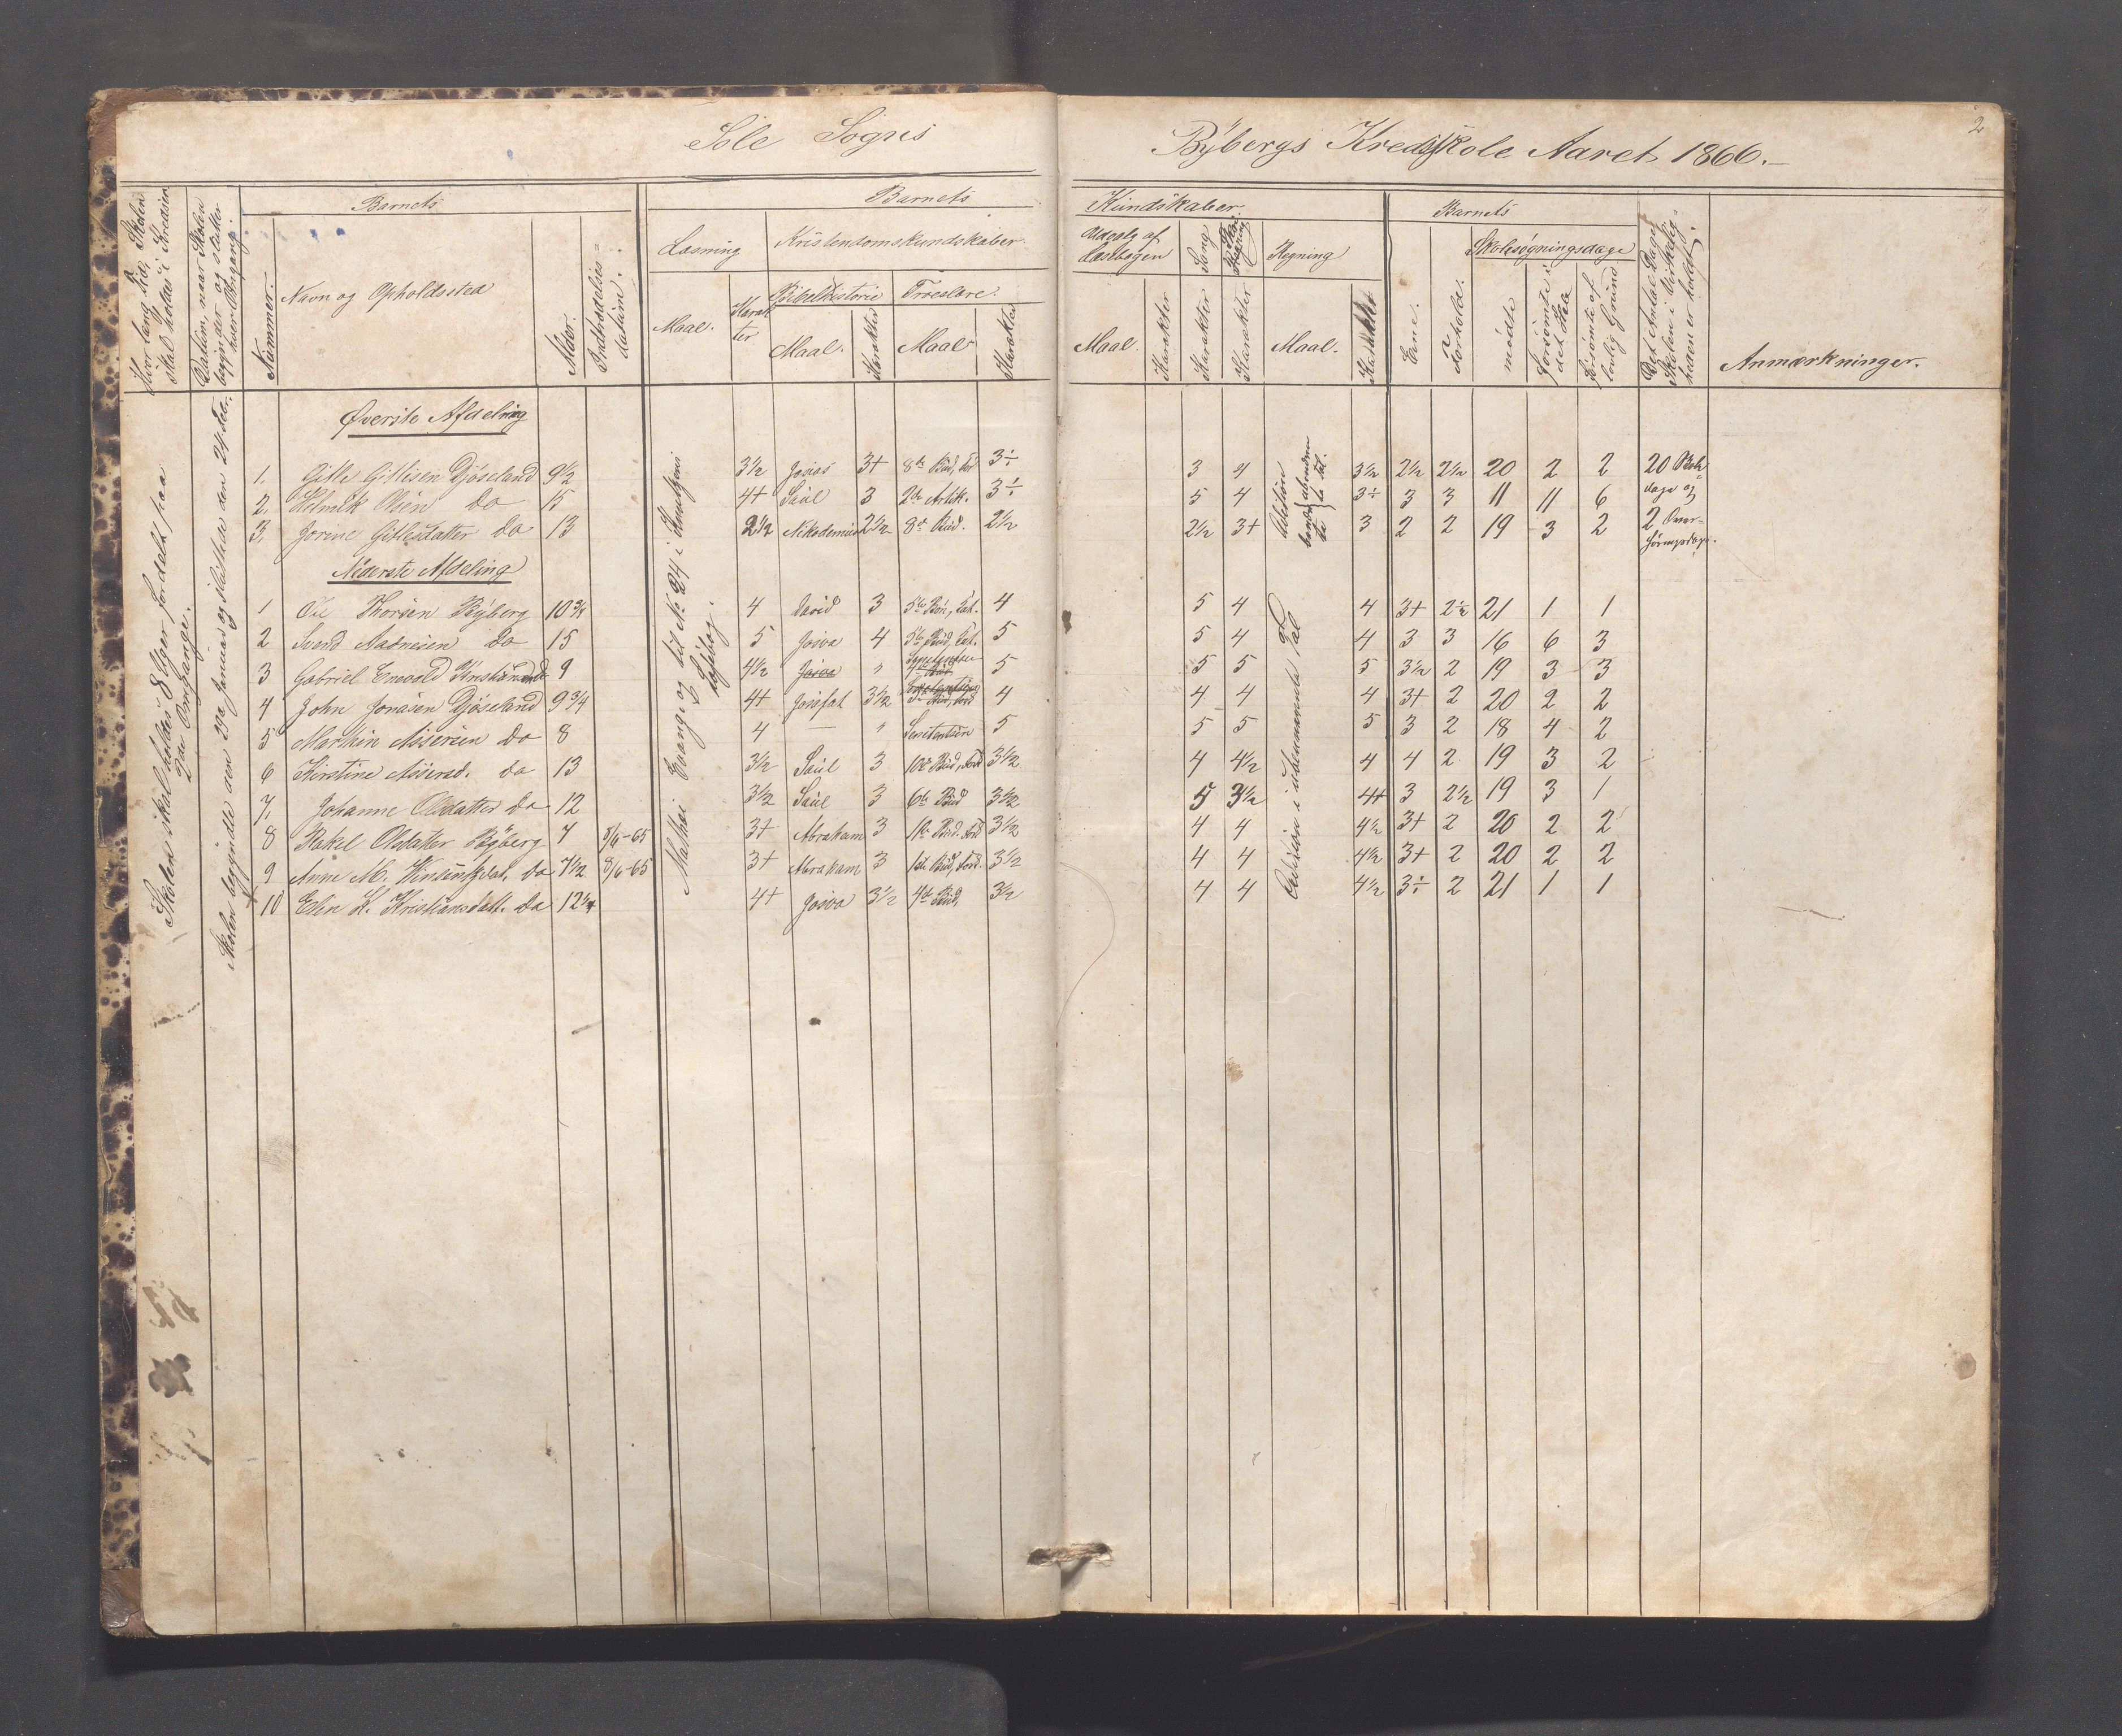 Sole Sogns
Bybergs Kredsskole Aaret 1866.
2
Hvor lang Tid Skolen skal holdes i Kredsen
Datum, naar Skolen begynder og slutter hver Omgang.
Barnets
Nummer.
Navn og Opholdssted
Alder.
Indtrædelses-datum.
Barnets
Læsning
Kristendomskundskaber.
Maal.
Karakter
Bibelhistorie
Troeslære.
Maal.
Karakter
Maal
Karakter
Kundskaber.
Udvalg af Læsebogen
Sang
Skrivning
Regning
Maal.
Karakter
Karakter
Karakter
Maal.
Karakter
Barnets
Evne.
Forhold.
Skolesøgningsdage
mødte
forsømte i det Hele
forsømte af lovlig Grund
Det Antal Dage Skolen i Virkeligheden er holdt.
Anmærkninger.
Skolen skal holdes 8 Uger fordeelt paa 2de Omgange.
Skolen begyndte den 29de Januar og sluttede den 24 Febr.
Matthæi Evang. og til No 24 i Knudsens Løsebog.
Øverste Afdeling
1. Gitle Gitlesen Djøseland 9½ 3½ Josias 3+ 8de Bud, Ford 3÷ 3 4 3½ 2½ 2½ 20 2 2 20 Skole-
2. Helmik Olsen do 15 4+ Saul 3 2den Artik. 3÷ 5 4 3÷ 3 3 11 11 6 dage og
3. Jorine Gitlesdatter do 13 2½ Nikodemus 2½ 8de Bud. 2½ 2½ 3+ 3 2 2 19 3 2 2 Over-
høringsdage.
Nederste Afdeling
1 Ole Thorsen Byberg 10¾ 4 David 3 5te Bøn, Kat. 4 5 4 4 3+ 2½ 21 1 1
2 Svend Aadnesen do 15 5 Josva 4 5te Bud, Kat. 5 5 4 4 3 3 16 6 3
3 Gabriel Enevald Kristiansen do 9 4½ Josva " 5 5 5 5 3½ 2 19 3 3
4 John Jonasen Djøseland 9¾ 4+ Josafat 3½ 5te Bud, Ford 4 4 4 4 3+ 2 20 2 2
5 Marthin Assersen do 8 4 — " Sentensen 5 5 5 5 3 2 18 4 2
6 Kirstine Assersd. do 13 3½ Saul 3 10de Bud, Ford 3½ 4 4½ 4 4 2 19 3 2
7. Johanne Olsdatter do 12 3½ Saul 3 6te Bud 3½ 5 3½ 4+ 3 2½ 19 3 1
8 Rakel Olsdatter Byberg 7 8/6-65 3+ Abraham 3 1ste Bud. Ford 3½ 4 4 4½ 3+ 2 20 2 2
9 Anne M. do 7½ 8/6-65 3+ Abraham 3 1ste Bud, Ford. 3½ 4 4 4½ 3+ 2 20 2 2
10 Elin K. Kristiansdatt. do 12¼ 4+ Josva 3½ 4de Bud, 3½ 4 4 4½ 3÷ 2 21 1 1
Addition i ubenævnte Tal